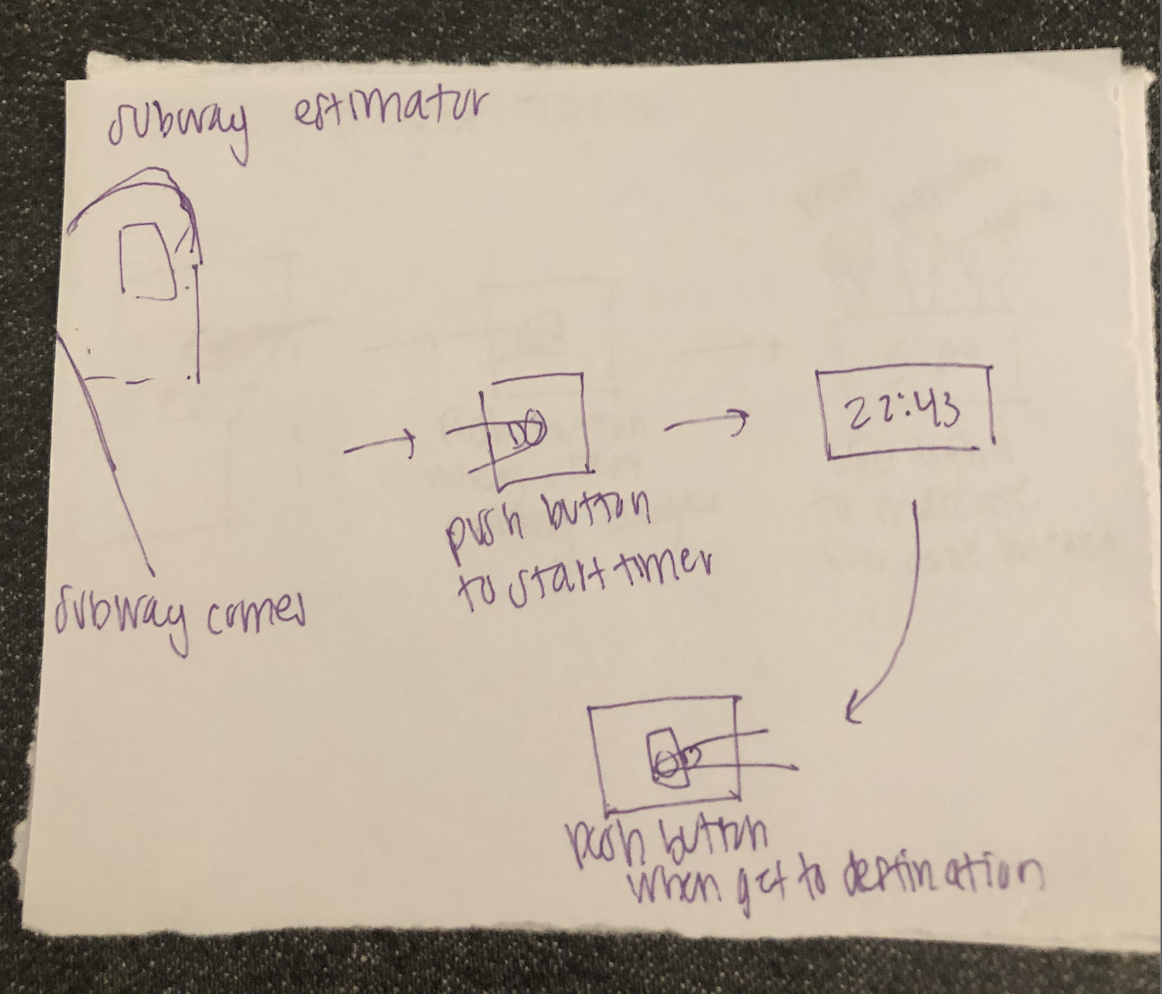 subway estimator
subway comes
push button
to start timer
22:43
push button
when get to destination